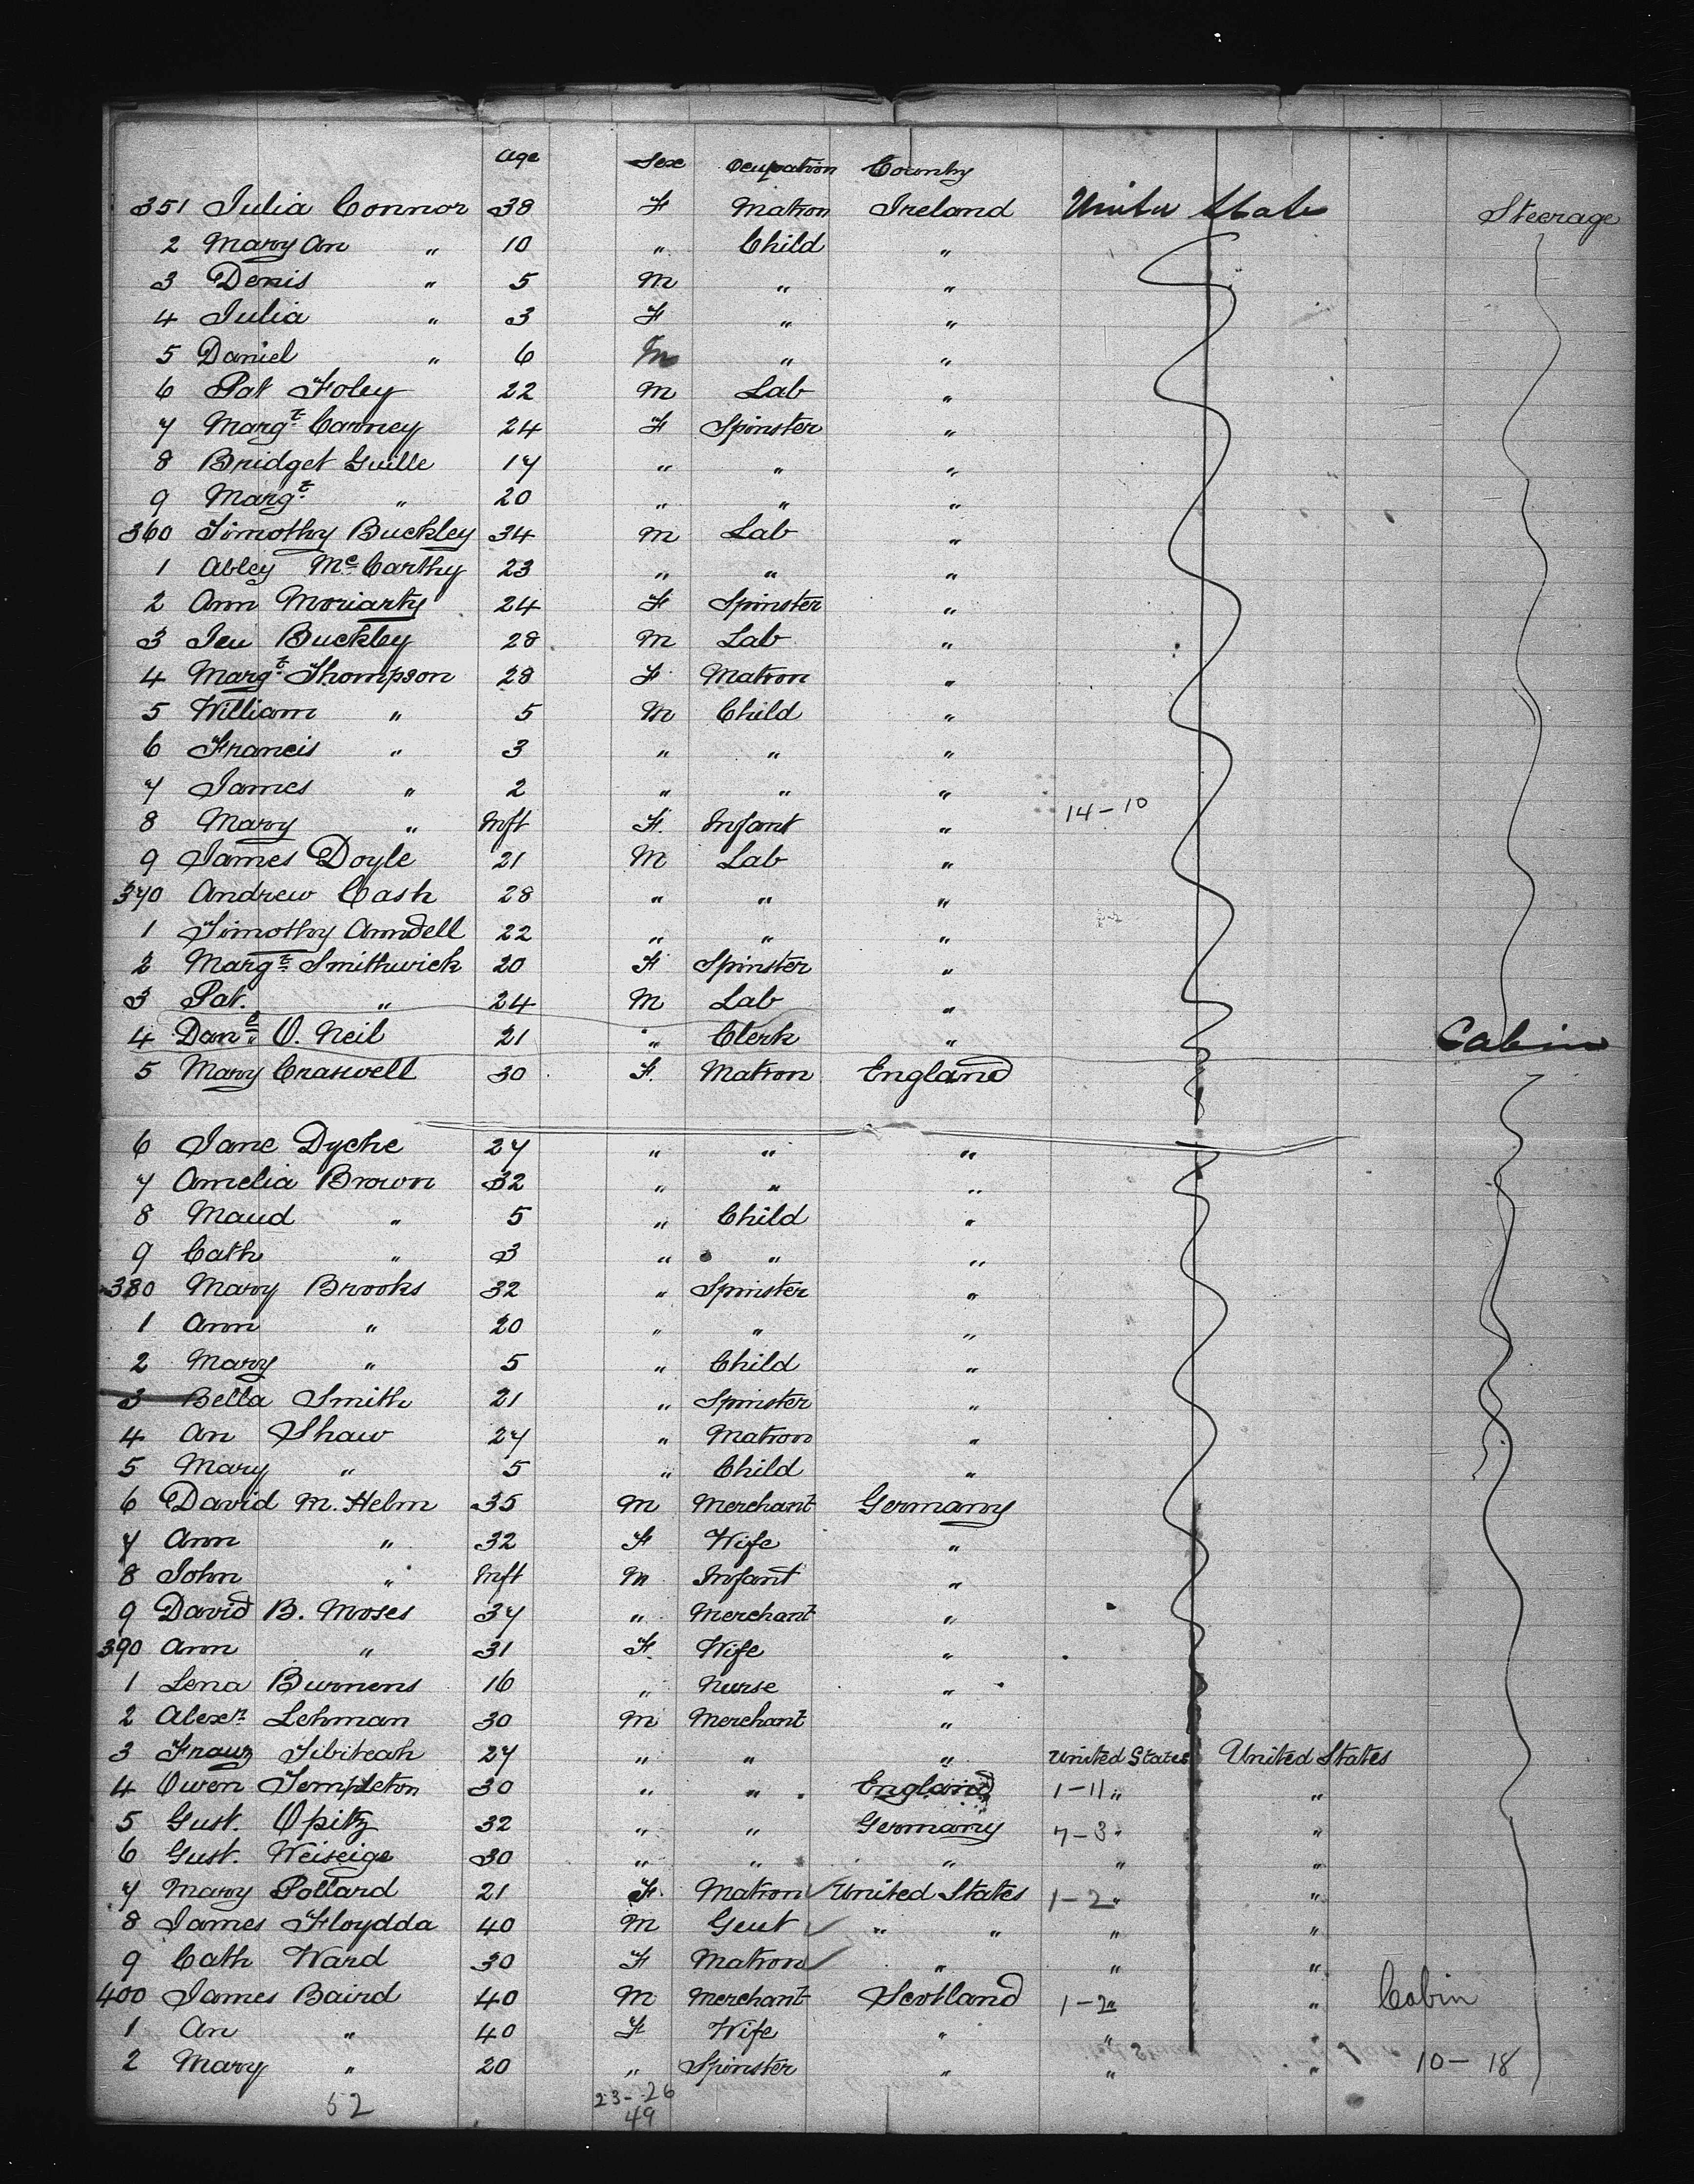 Age Sex Ocupation Country
351 Julia Connor 38 F Matron Ireland United States Steerage
2 Mary An " 10 " Child "
3 Denis " 5 M " "
4 Julia " 3 F " "
5 Daniel " 6 M " "
6 Pat Foley 22 M Lab "
7 Margt Carney 24 F Spinster "
8 Bridget Guille 17 " " "
9 Margt " 20 " " "
360 Timothy Buckley 34 M Lab "
1 Abley McCarthy 23 " " "
2 Ann Moriarty 24 F Spinster "
3 Jeu Buckley 28 M Lab "
4 Margt Thompson 28 F Matron "
5 William " 5 M Child "
6 Francis " 3 " " "
7 James " 2 " " " 14-10
8 Mary " Inft F. Infant "
9 James Doyle 21 M Lab "
370 Andrew Cash 28 " " "
1 Timothy Arundell 22 " " "
2 Margt Smithwick 20 F Spinster "
3 Pat. " 24 M Lab "
4 Danl O. Neil 21 " Clerk " Cabin
5 Mary Craswell 30 F. Matron England
6 Jane Dyche 27 " " "
7 Amelia Brown 32 " " "
8 Maud " 5 " Child "
9 Cath " 3 " " "
380 Mary Brooks 32 " Spinster "
1 Ann " 20 " " "
2 Mary " 5 " Child "
3 Bella Smith 21 " Spinster "
4 An Shaw 27 " Matron "
5 Mary " 5 " Child "
6 David M. Helm 35 M Merchant Germany
7 Ann " 32 F Wife "
8 John " Inft M Infant "
9 David B. Moses 37 " Merchant "
390 Ann " 31 F. Wife "
1 Lena Burnens 16 " Nurse "
2 Alexr Lehman 30 M Merchant "
3 Franz 27 " " " United States United States
4 Owen Templeton 30 " " England 1-11 " "
5 Gust. Opitz 32 " " Germany 7-3 " "
6 Gust. Weiseige 30 " " " " "
7 Mary Pollard 21 F. Matron United States 1-2 " "
8 James Floydda 40 M Gent " " " "
9 Cath Ward 30 F Matron " " "
400 James Baird 40 M Merchant Scotland 1-2 " " Cabin
1 An " 40 F Wife " " "
2 Mary " 20 " Spinster " " " 10-18
52 23-26
49